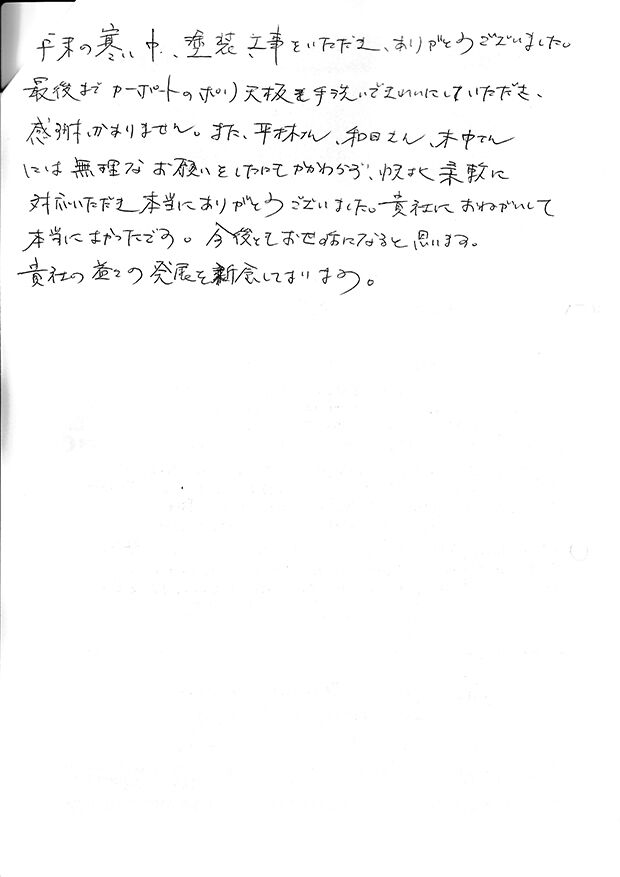 年末の寒い中、塗装工事をいただき、ありがとうございました。
最後までカーポートのポリ天板を手洗いできれいにしていただき、
感謝、かありません。また、平林さん、和田さん、木中さん
には無理なお願いをしたにもかかわらず、快よく柔軟に
対応いただき本当にありがとうございました。貴社におねがいして
本当によかったです。今後ともお世話になると思います。
貴社の益々の発展を祈念しております。